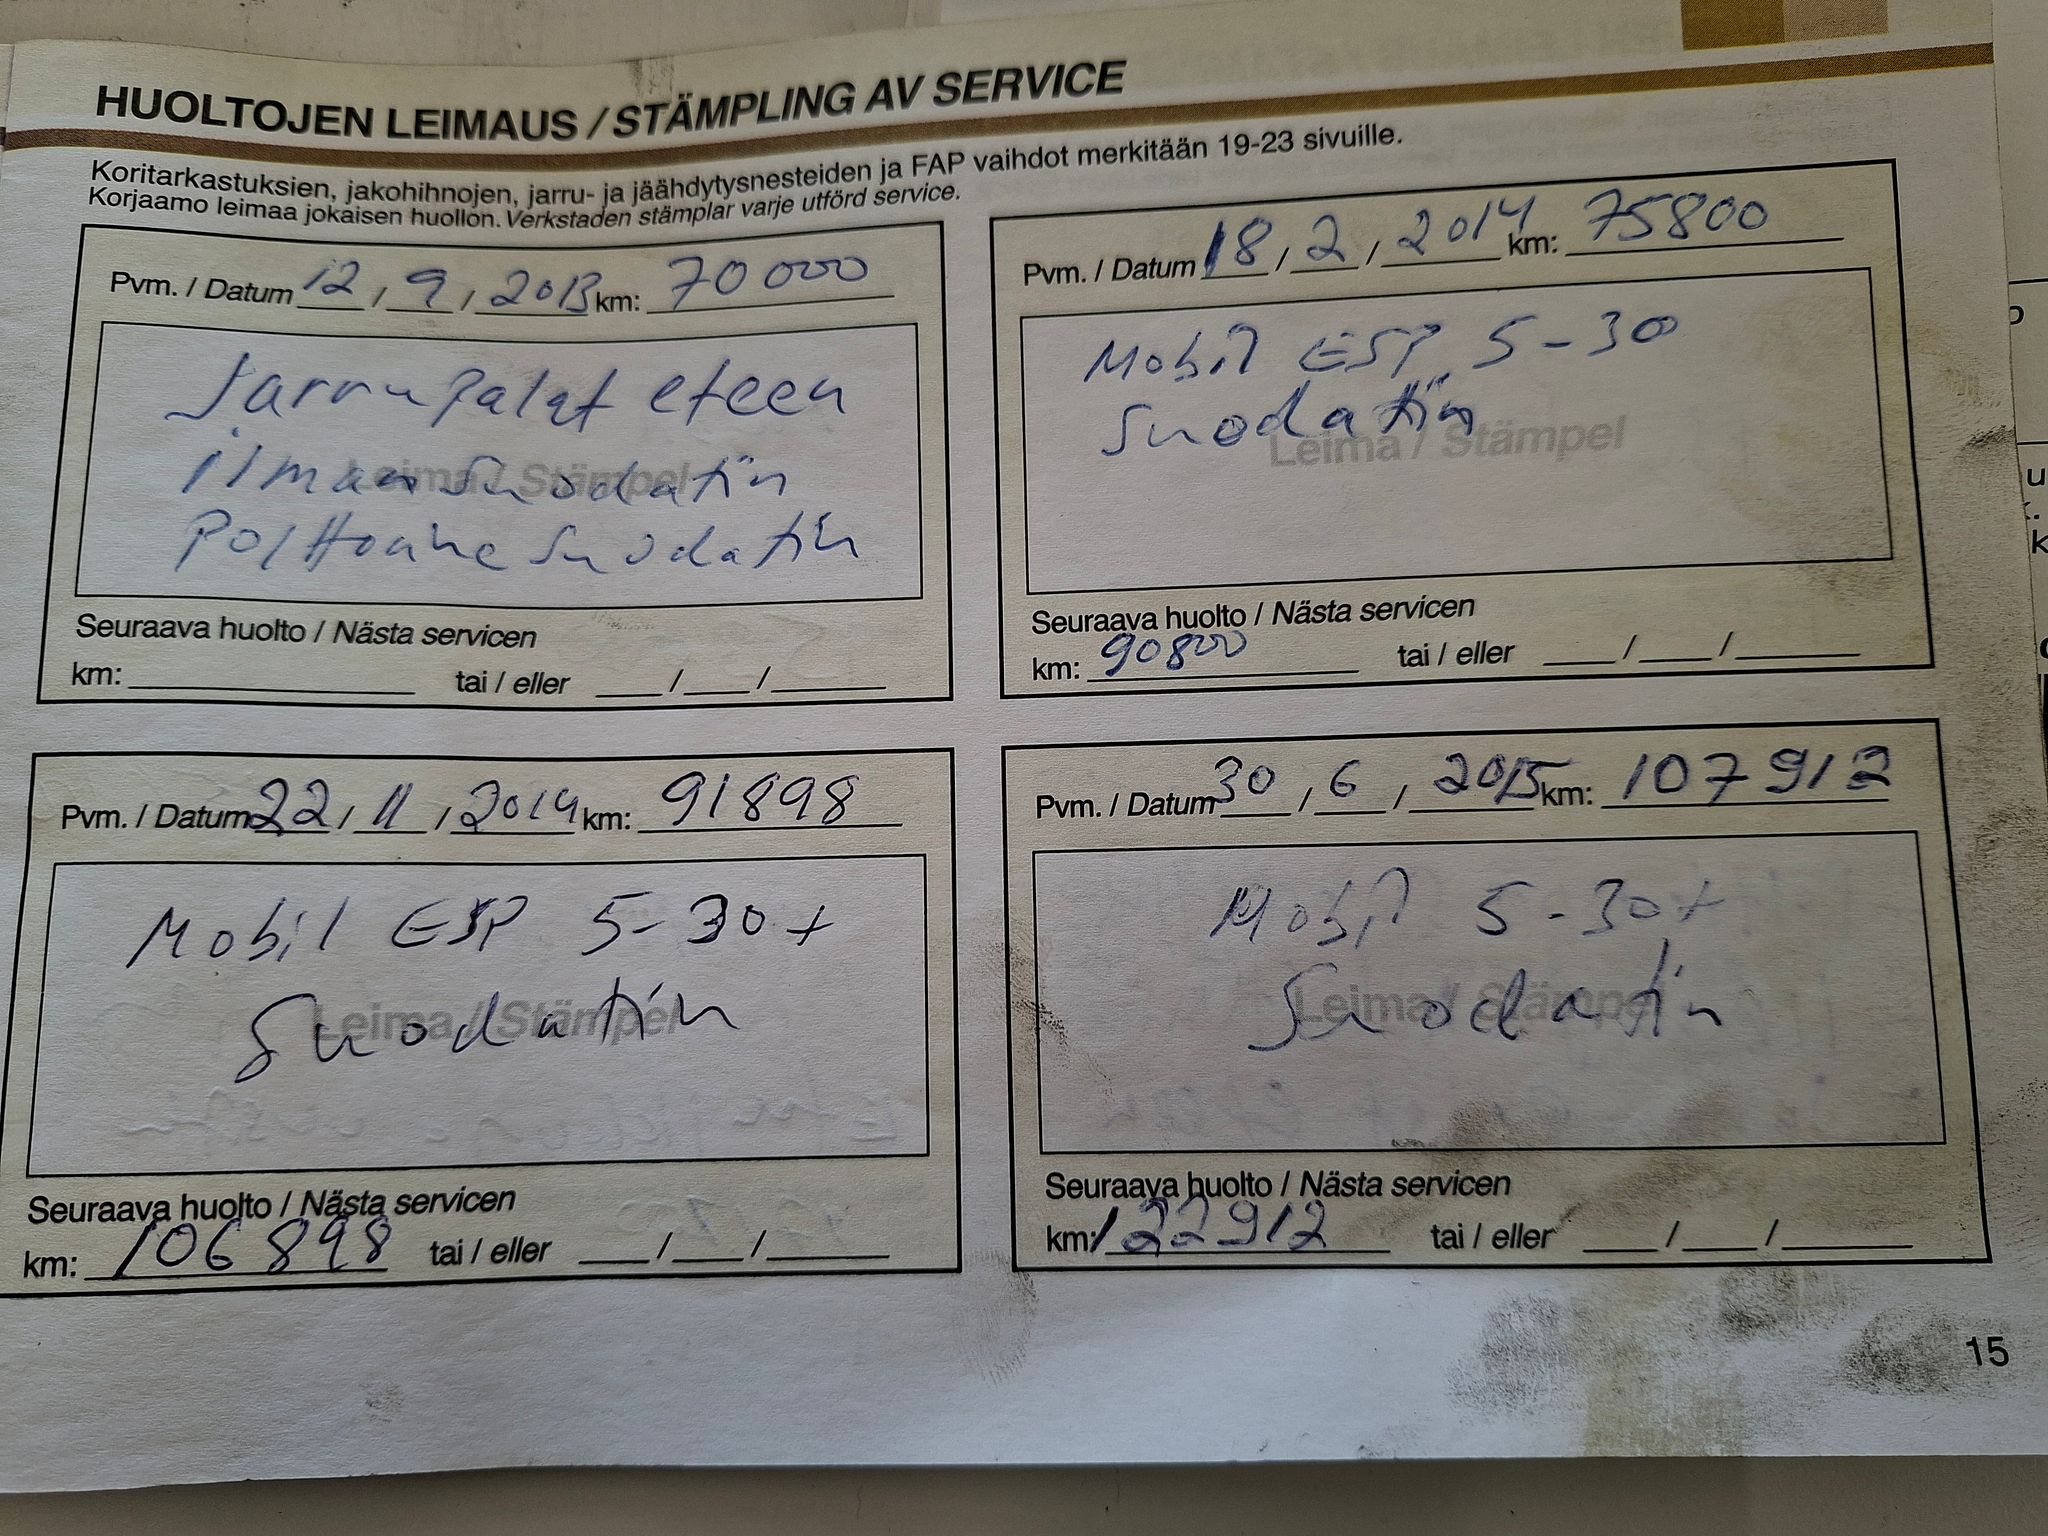 HUOLTOJEN LEIMAUS / STÄMPLING AV SERVICE
Koritarkastuksien, jakohihnojen, jarru- ja jäähdytysnesteiden ja FAP vaihdot merkitään 19-23 sivuille.
Korjaamo leimaa jokaisen huollon. Verkstaden stämplar varje utförd service.
Pvm. / Datum 12 / 9 / 2013 km: 70000
Jarrupalat eteen
ilmansuodatin
Leima / Stämpel
Polttoainesuodatin
Seuraava huolto / Nästa servicen
km: tai / eller / /
Pvm. / Datum 18 / 2 / 2014 km: 75800
Mobil ESP 5-30
Suodatin
Leima / Stämpel
Seuraava huolto / Nästa servicen
km: 90800 tai / eller / /
Pvm. / Datum 22 / 11 / 2014 km: 91898
Mobil ESP 5-30 +
Suodatin
Leima / Stämpel
Seuraava huolto / Nästa servicen
km: 106898 tai / eller / /
Pvm. / Datum 30 / 6 / 2015 km: 107912
Mobil 5-30 +
Suodatin
Leima / Stämpel
Seuraava huolto / Nästa servicen
km: 122912 tai / eller / /
15